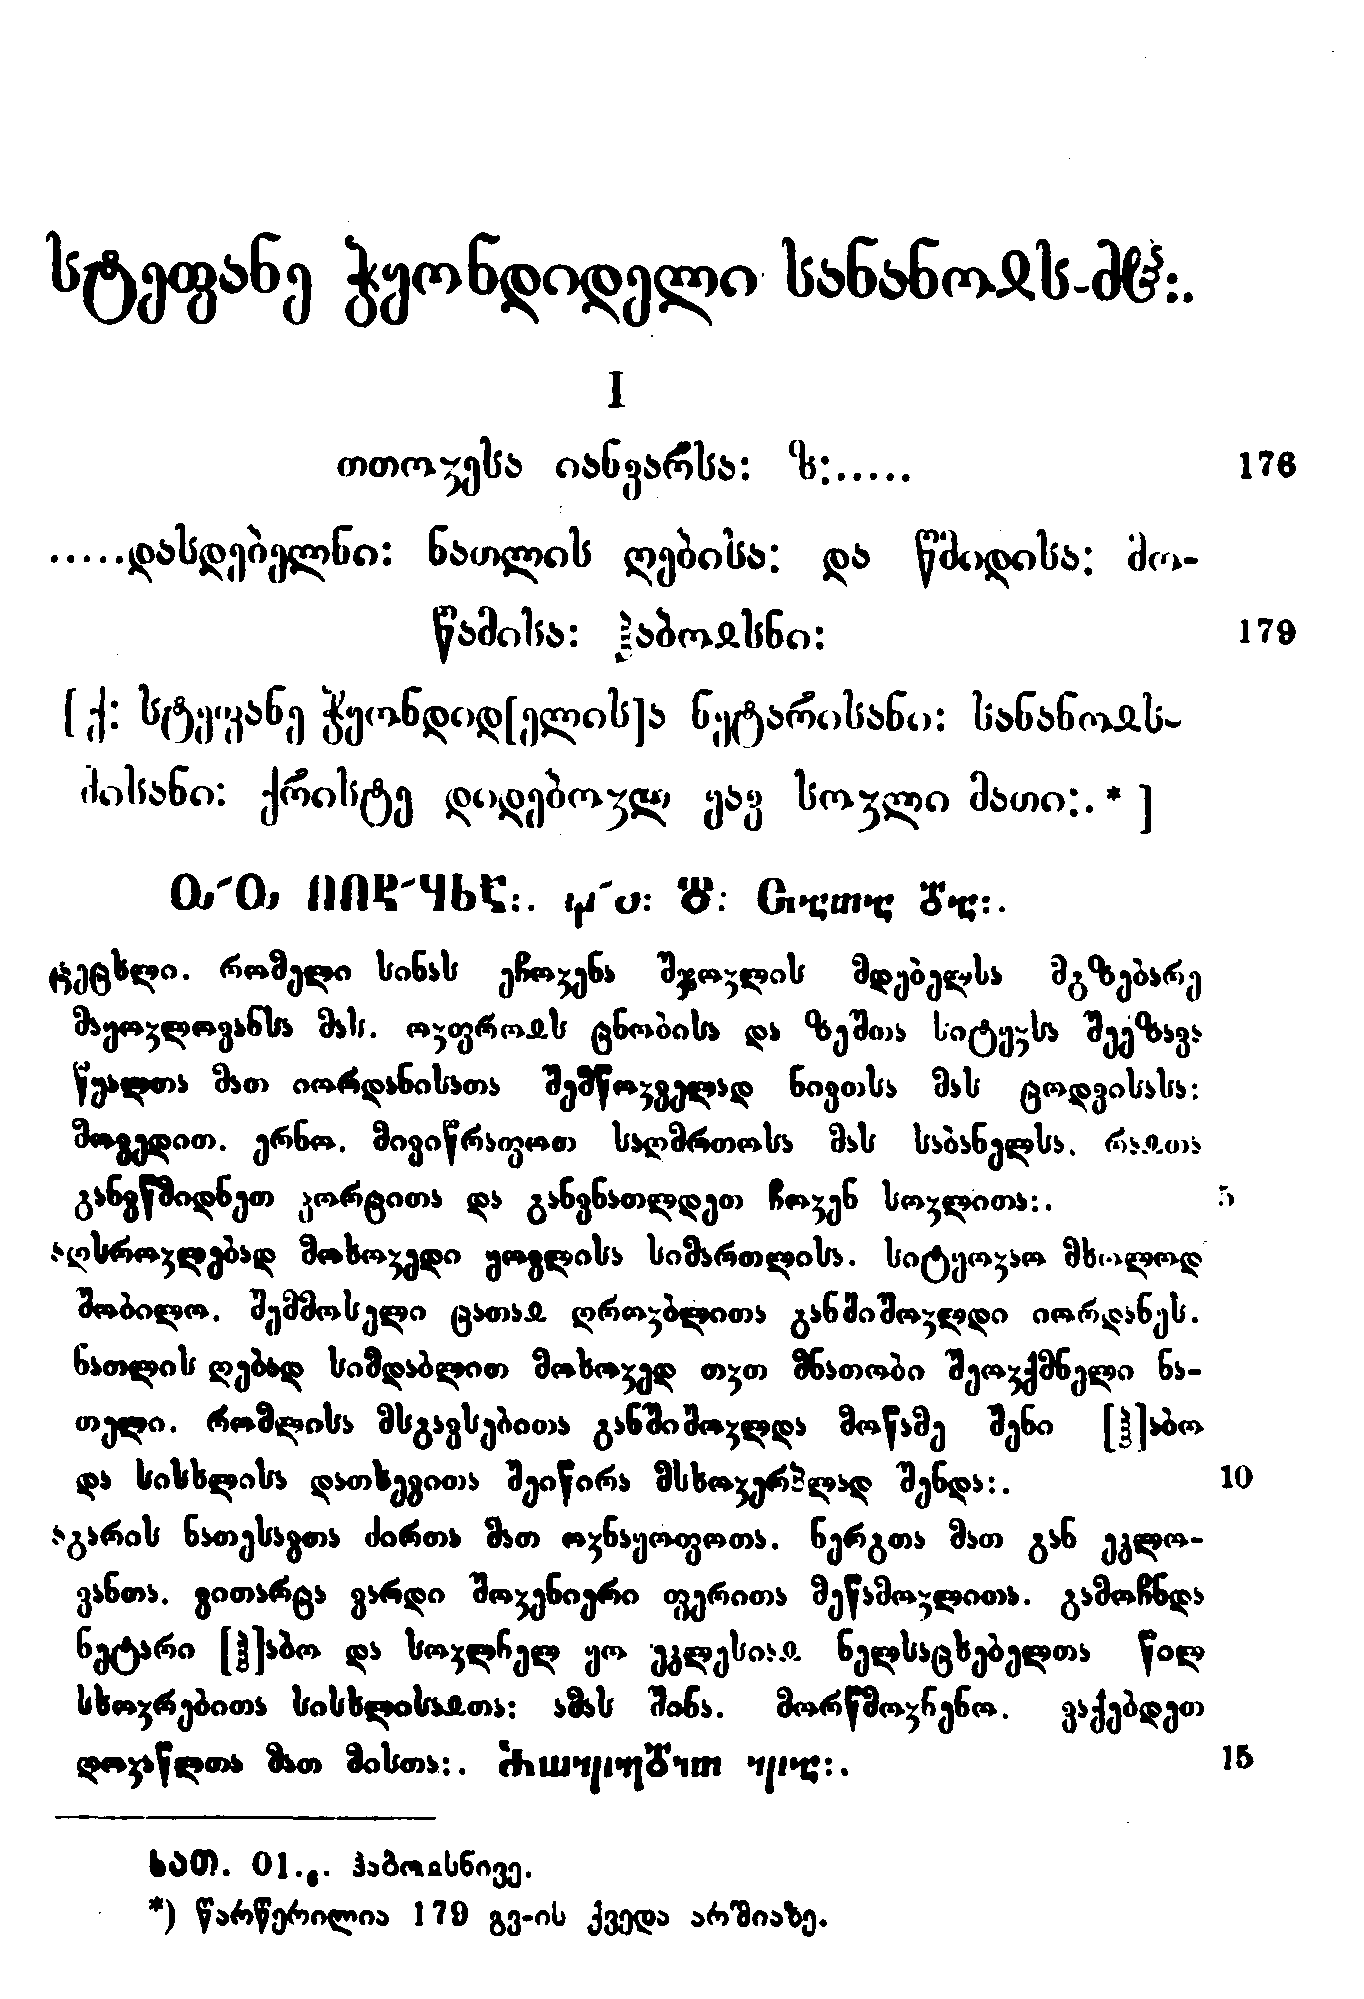 სტეფანე ჭყონდიდელი სანანოჲს-ძ�ჱ:.
I
თთოჳესა იანვარსა: ზ:..... 176
.....დასდებელნი: ნათლის ღებისა: და წმიდისა: მო-
წამისა: ჰაბოჲსნი: 179
[ქ: სტეფანე ჭყონდიდ[ელის]ა ნეტარისანი: სანანოჲს-
ძისანი: ქრისტე დიდებოჳლ ყავ სოჳლი მათი:.*]
ცეცხლი. რომელი სინას ეჩოჳენა შჯოჳლის მდებელსა მგზებარე
მაყოჳლოვანსა მას. ოჳფროჲს ცნობისა და ზეშთა სიტყჳსა შეეზავა
წყალთა მათ იორდანისათა შემწოჳველად ნივთსა მას ცოდვისასა:
მოვედით. ერნო. მივიწრაფოთ საღმრთოსა მას საბანელსა. რაჲთა
განვწმიდნეთ კორცითა და განვნათლდეთ ჩოჳენ სოჳლითა:. 5
აღსროჳლებად მოხოჳედი ყოვლისა სიმართლისა. სიტყოჳაო მხოლოდ
შობილო. შემმოსელი ცათაჲ ღროჳბლითა განშიშოჳლდი იორდანეს.
ნათლის ღებად სიმდაბლით მოხოჳედ თჳთ მნათობი შეოჳქმნელი ნა-
თელი. რომლისა მსგავსებითა განშიშოჳლდა მოწამე შენი [ჰ]აბო
და სისხლისა დათხევითა შეიწირა მსხოჳერპლად შენდა:. 10
აგარის ნათესავთა ძირთა მათ ოჳნაყოფოთა. ნერგთა მათ გან ეკლო-
ვანთა. ვითარცა ვარდი შოჳენიერი ფერითა მეწამოჳლითა. გამოჩნდა
ნეტარი [ჰ]აბო და სოჳლნელ ყო ეკლესიაჲ ნელსაცხებელთა წილ
სხოჳრებითა სისხლისაჲთა: ამას შინა. მორწმოჳნენო. ვაქებდეთ
დოჳაწლთა მათ მისთა:. ⴋⴍⴐⴜⴋ 15
ჰაბოჲსნივე.
*) წარწერილია 179 გვ-ის ქვედა არშიაზე.